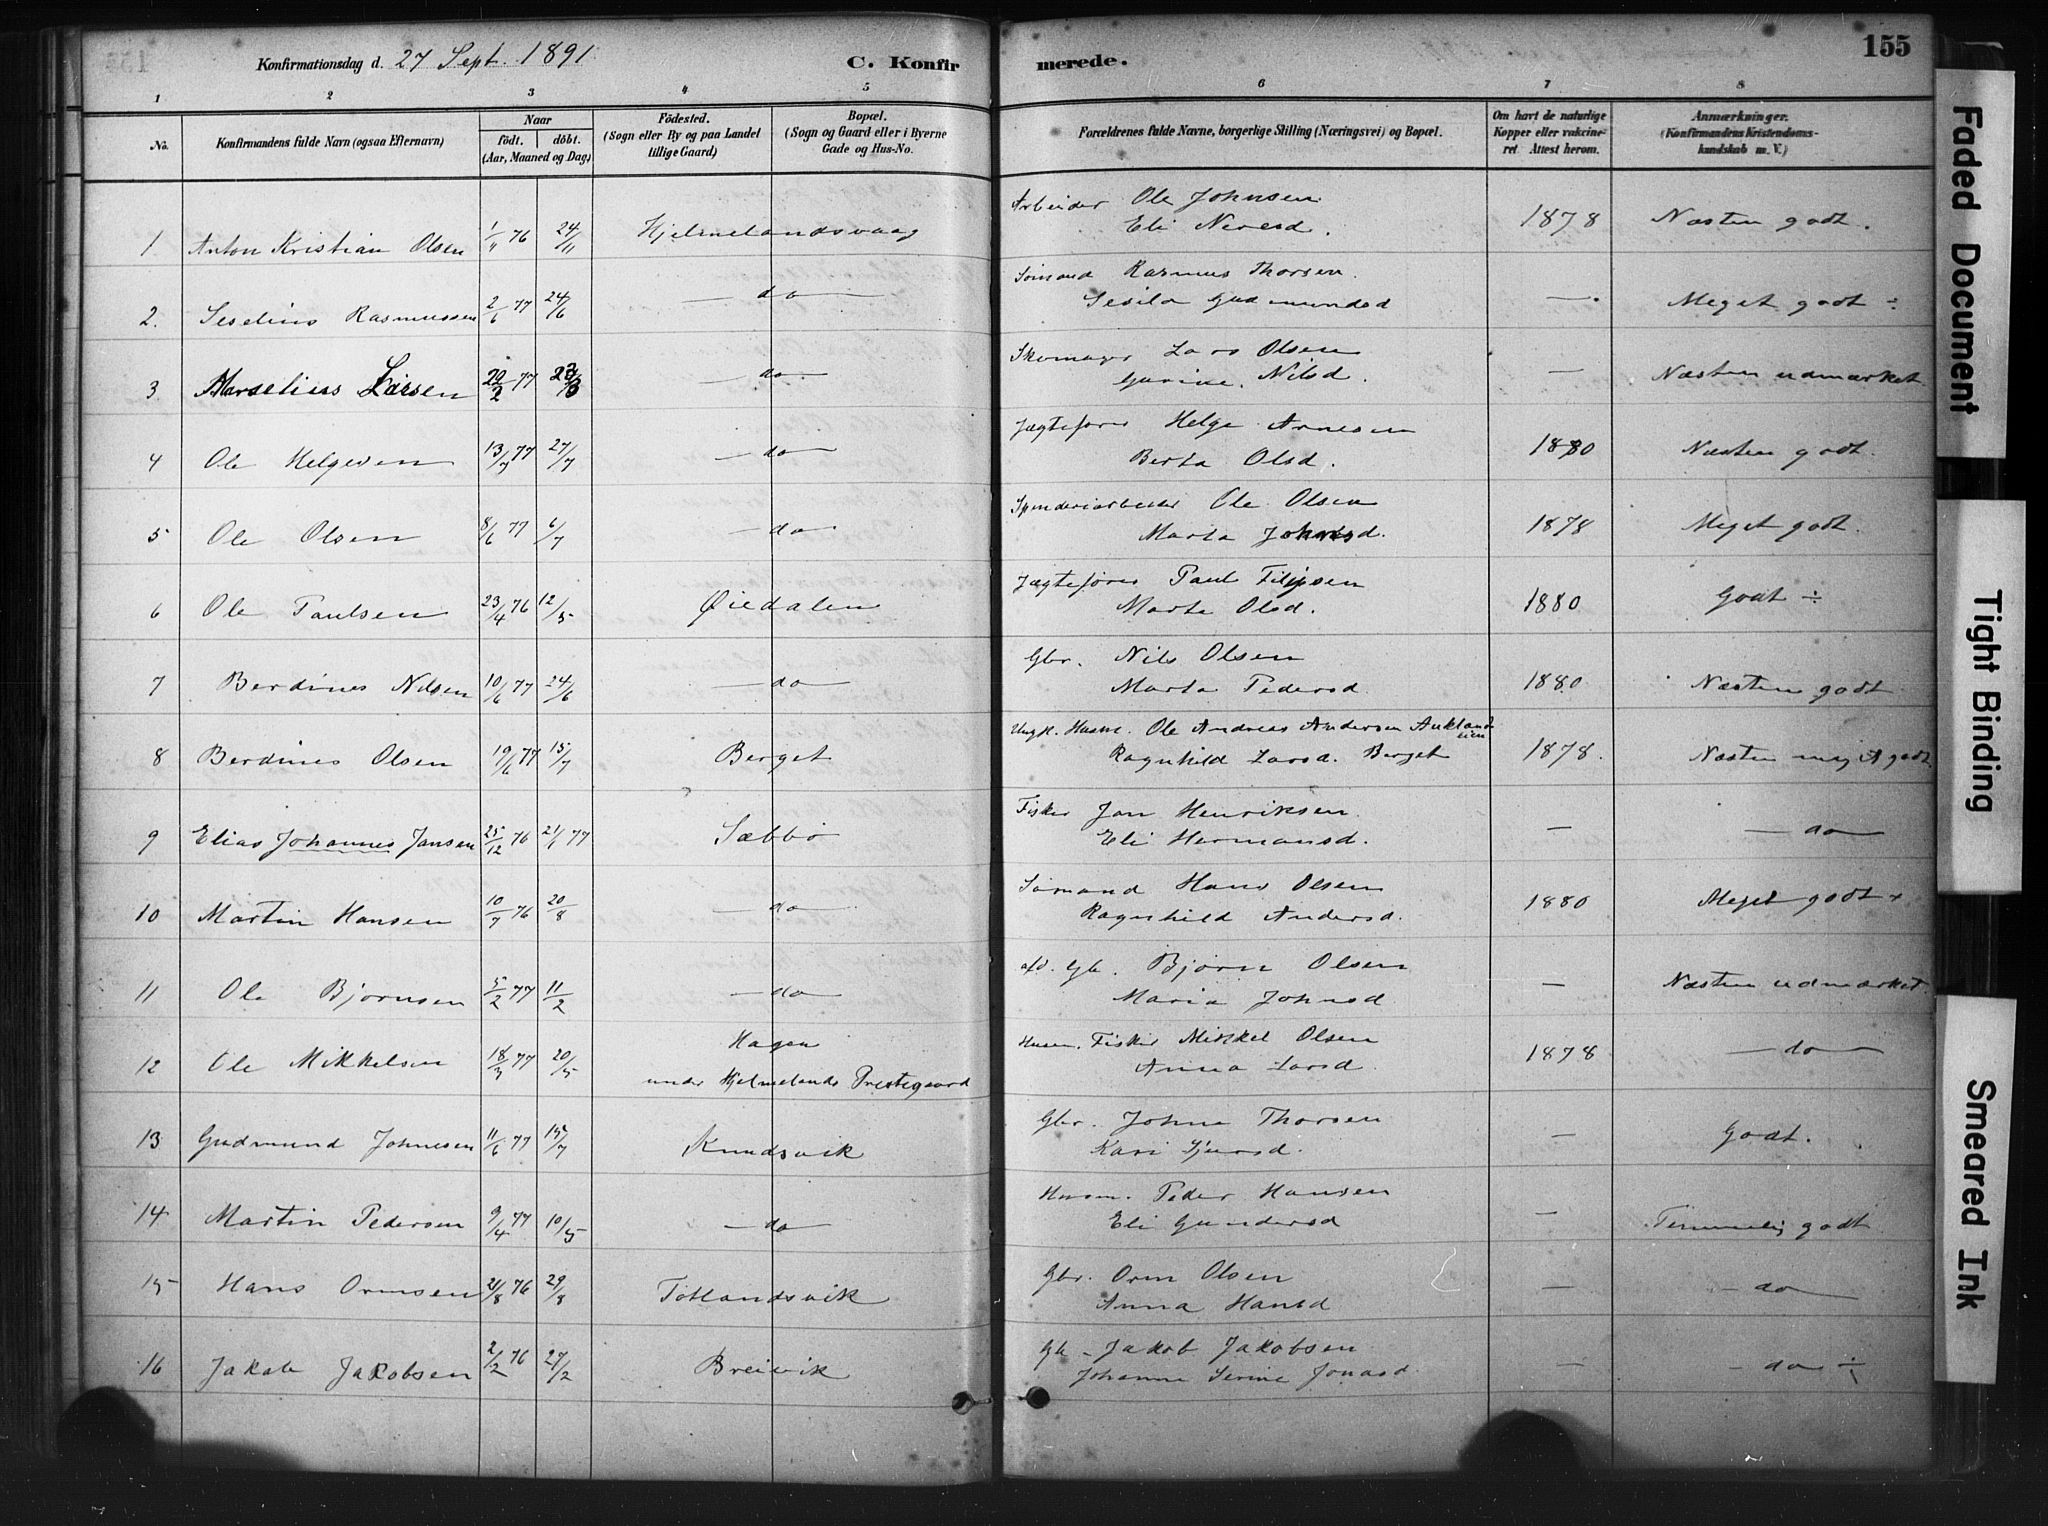 155
Konfirmationsdag d. 27 Sept. 1891
C. Konfirmerede.
1 2 3 4 5 6 7 8
No.
Konfirmandens fulde Navn (ogsaa Efternavn)
Naar
födt. döbt.
(Aar, Maaned og Dag)
Födested.
(Sogn eller By og paa Landet tillige Gaard)
Bopæl.
(Sogn og Gaard eller i Byerne Gade og Hus-No.
Forældrenes fulde Navne, borgerlige Stilling (Næringsvei) og Bopæl.
Om havt de naturlige Kopper eller vakcineret Attest herom.
Anmærkninger.
(Konfirmandens Kristendomskundskab m. V.)
1 Anton Kristian Olsen 1/11 76 24/11 Hjelmelandsvaag Arbeider Ole Johnsen 1878 Næsten godt.
Eli Neresd.
2. Seselius Rasmussen 2/6 77 24/6 — do — Sömand Rasmus Thorsen — Meget godt ÷
Sesila Gudmundsd
3 Marselius Larsen 77 — do — Skomager Lars Olsen — Næsten udmærket
Gurine Nilsd.
4 Ole Helgesen 13/7 77 27/7 — do Jægtefører Helge Arnesen 1880 Næsten godt.
Berta Olsd.
5 Ole Olsen 8/6 77 6/7 — do Ole Olsen 1878 Meget godt.
Marta Johnsd.
6 Ole Paulsen 23/4 76 12/5 Øiedalen Jægtefører Paul Filipsen 1880 Godt ÷
Marta Olsd.
7 Berdines Nilsen 10/6 77 24/6 — do Gbr. Nils Olsen 1880 Næsten godt
Marta Pedersd
8 Berdines Olsen 19/6 77 15/7 Berget Ungk. Husm. Ole Andreas Andersen Aukland 1878. Næsten meget godt
Ragnhild Larsd. Berget
9 Elias Johannes Jansen 25/12 76 21/1 77 Sæbbö Fisker Jan Henriksen — — do
Eli Hermansd.
10 Martin Hansen 10/7 76 20/8 — do Sömand Hans Olsen 1880 Meget godt +
Ragnhild Andersd.
11 Ole Bjornsen 5/2 77 11/2 — do afd. Gb. Björn Olsen — Næsten udmærket
Maria Johnsd
12 Ole Mikkelsen 18/3 77 20/5 Hagen Husm. Fisker Mikkel Olsen 1878 — do —
under Hjelmelands Prestegaard Anna Larsd.
13 Gudmund Johnesen 11/6 77 15/7 Knudsvik Gbr. Johne Thorsen — Godt.
Kari Sjursd.
14 Martin Pedersen 9/4 77 10/5 — do Husm. Peder Hansen — Temmelig godt
Eli Gundersd
15 Hans Ormsen 21/8 76 29/8 Tøtlandsvik Gbr. Orm Olsen — — do
Anna Hansd
16 Jakob Jakobsen 2/2 76 27/2 Breivik Gb. Jakob Jakobsen — — do ÷
Johanne Serine Jonasd.
Faded Document
Tight Binding
Smeared Ink